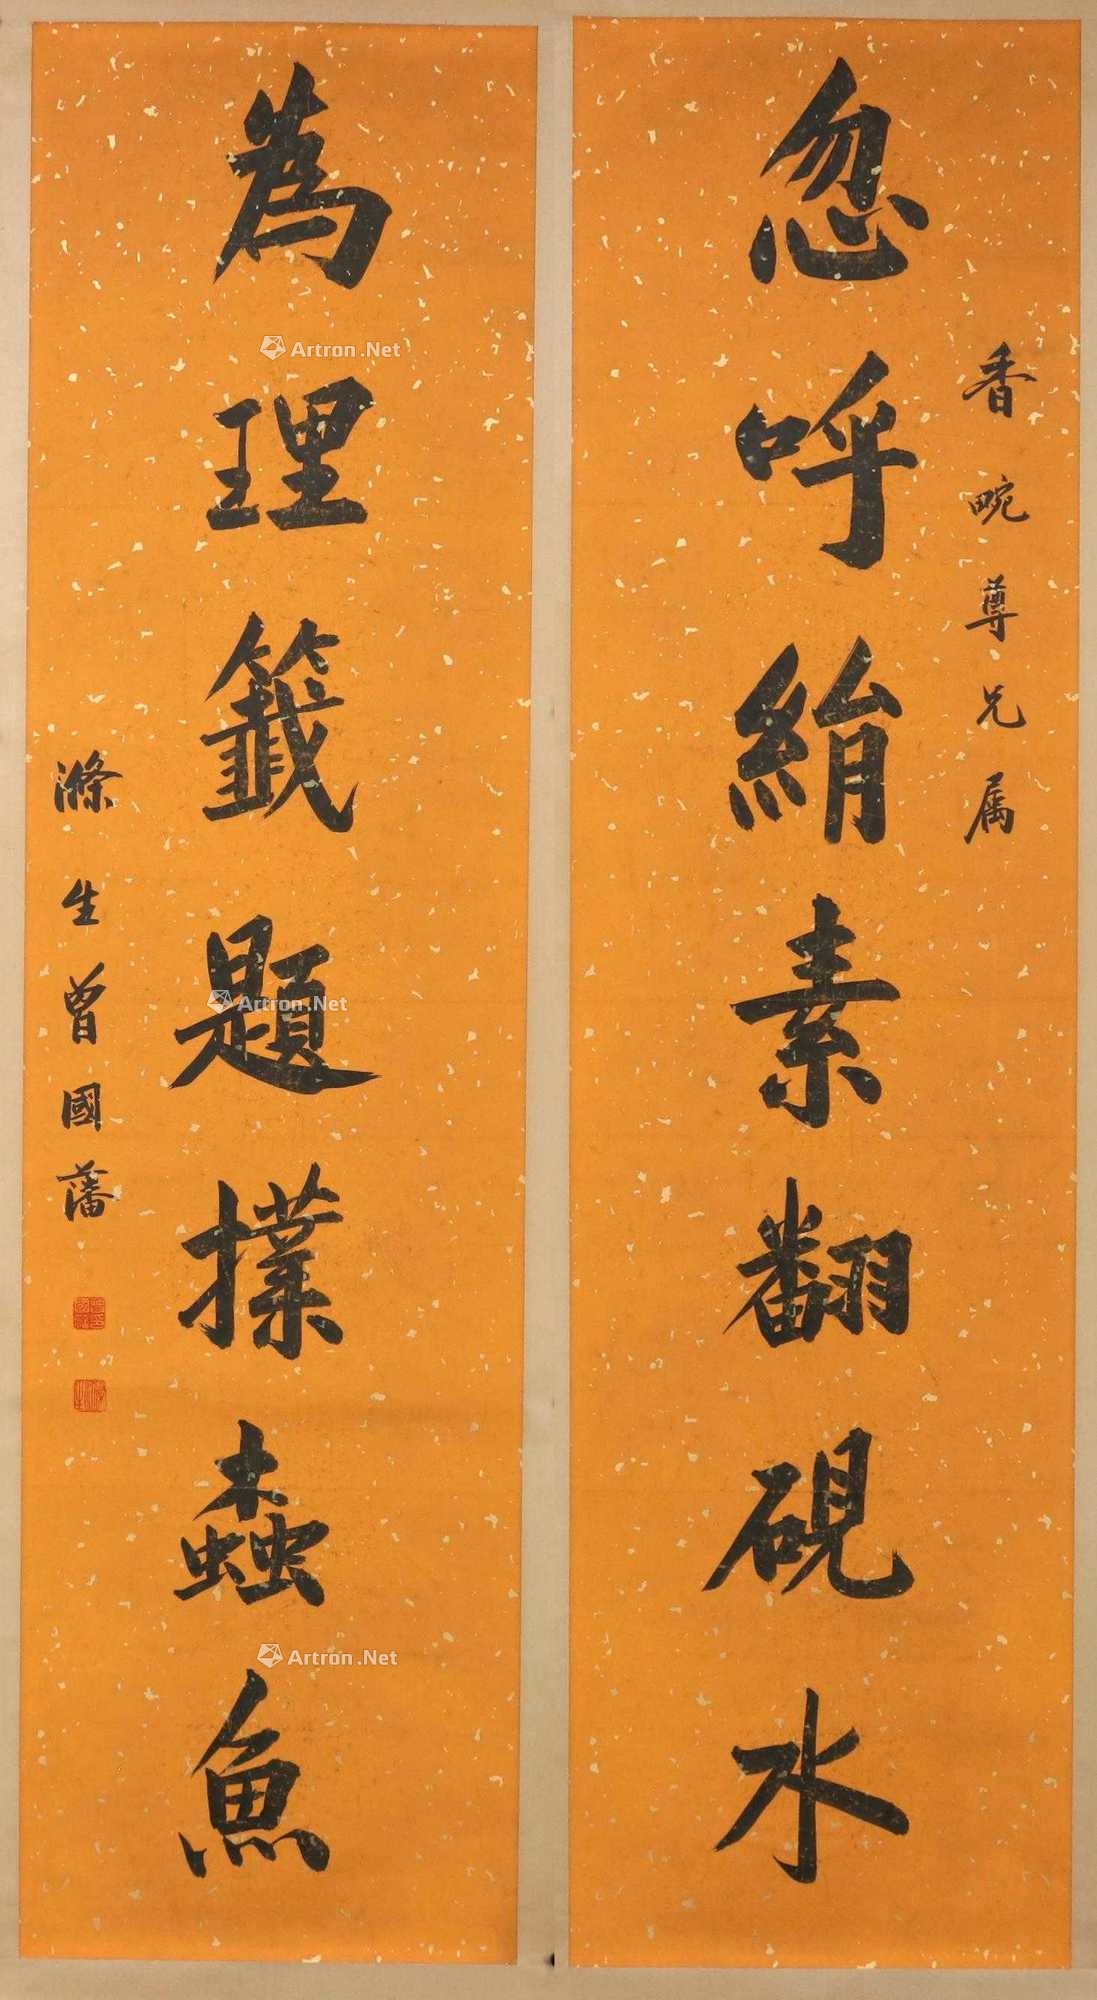 香畹尊兄属
忽呼絹素翻硯水
為理籤題撲蠧魚
滌生曾國藩
Artron.Net
Artron.Net
Artron.Net